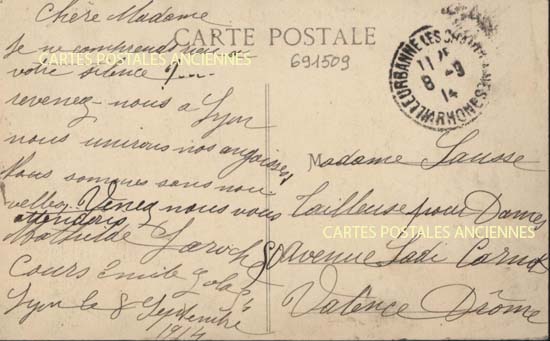 CARTE POSTALE
691509
Chère Madame
Je ne comprends rien a
votre silence ?...
revenez-nous a Lyon
nous unirons nos angoisses
Nous sommes sans nou
velles. Venez nous vous
attendons
Mathilde
Cours Emile Zola
Lyon le 8 Septembre
1914
VILLEURBANNE LES CHARPENNES RHONE
11
8 -9
14
Madame Sausse
Tailleuse pour Dames
Avenue Sadi Carnot
Valence Drôme
CARTES POSTALES ANCIENNES
CARTES POSTALES ANCIENNES